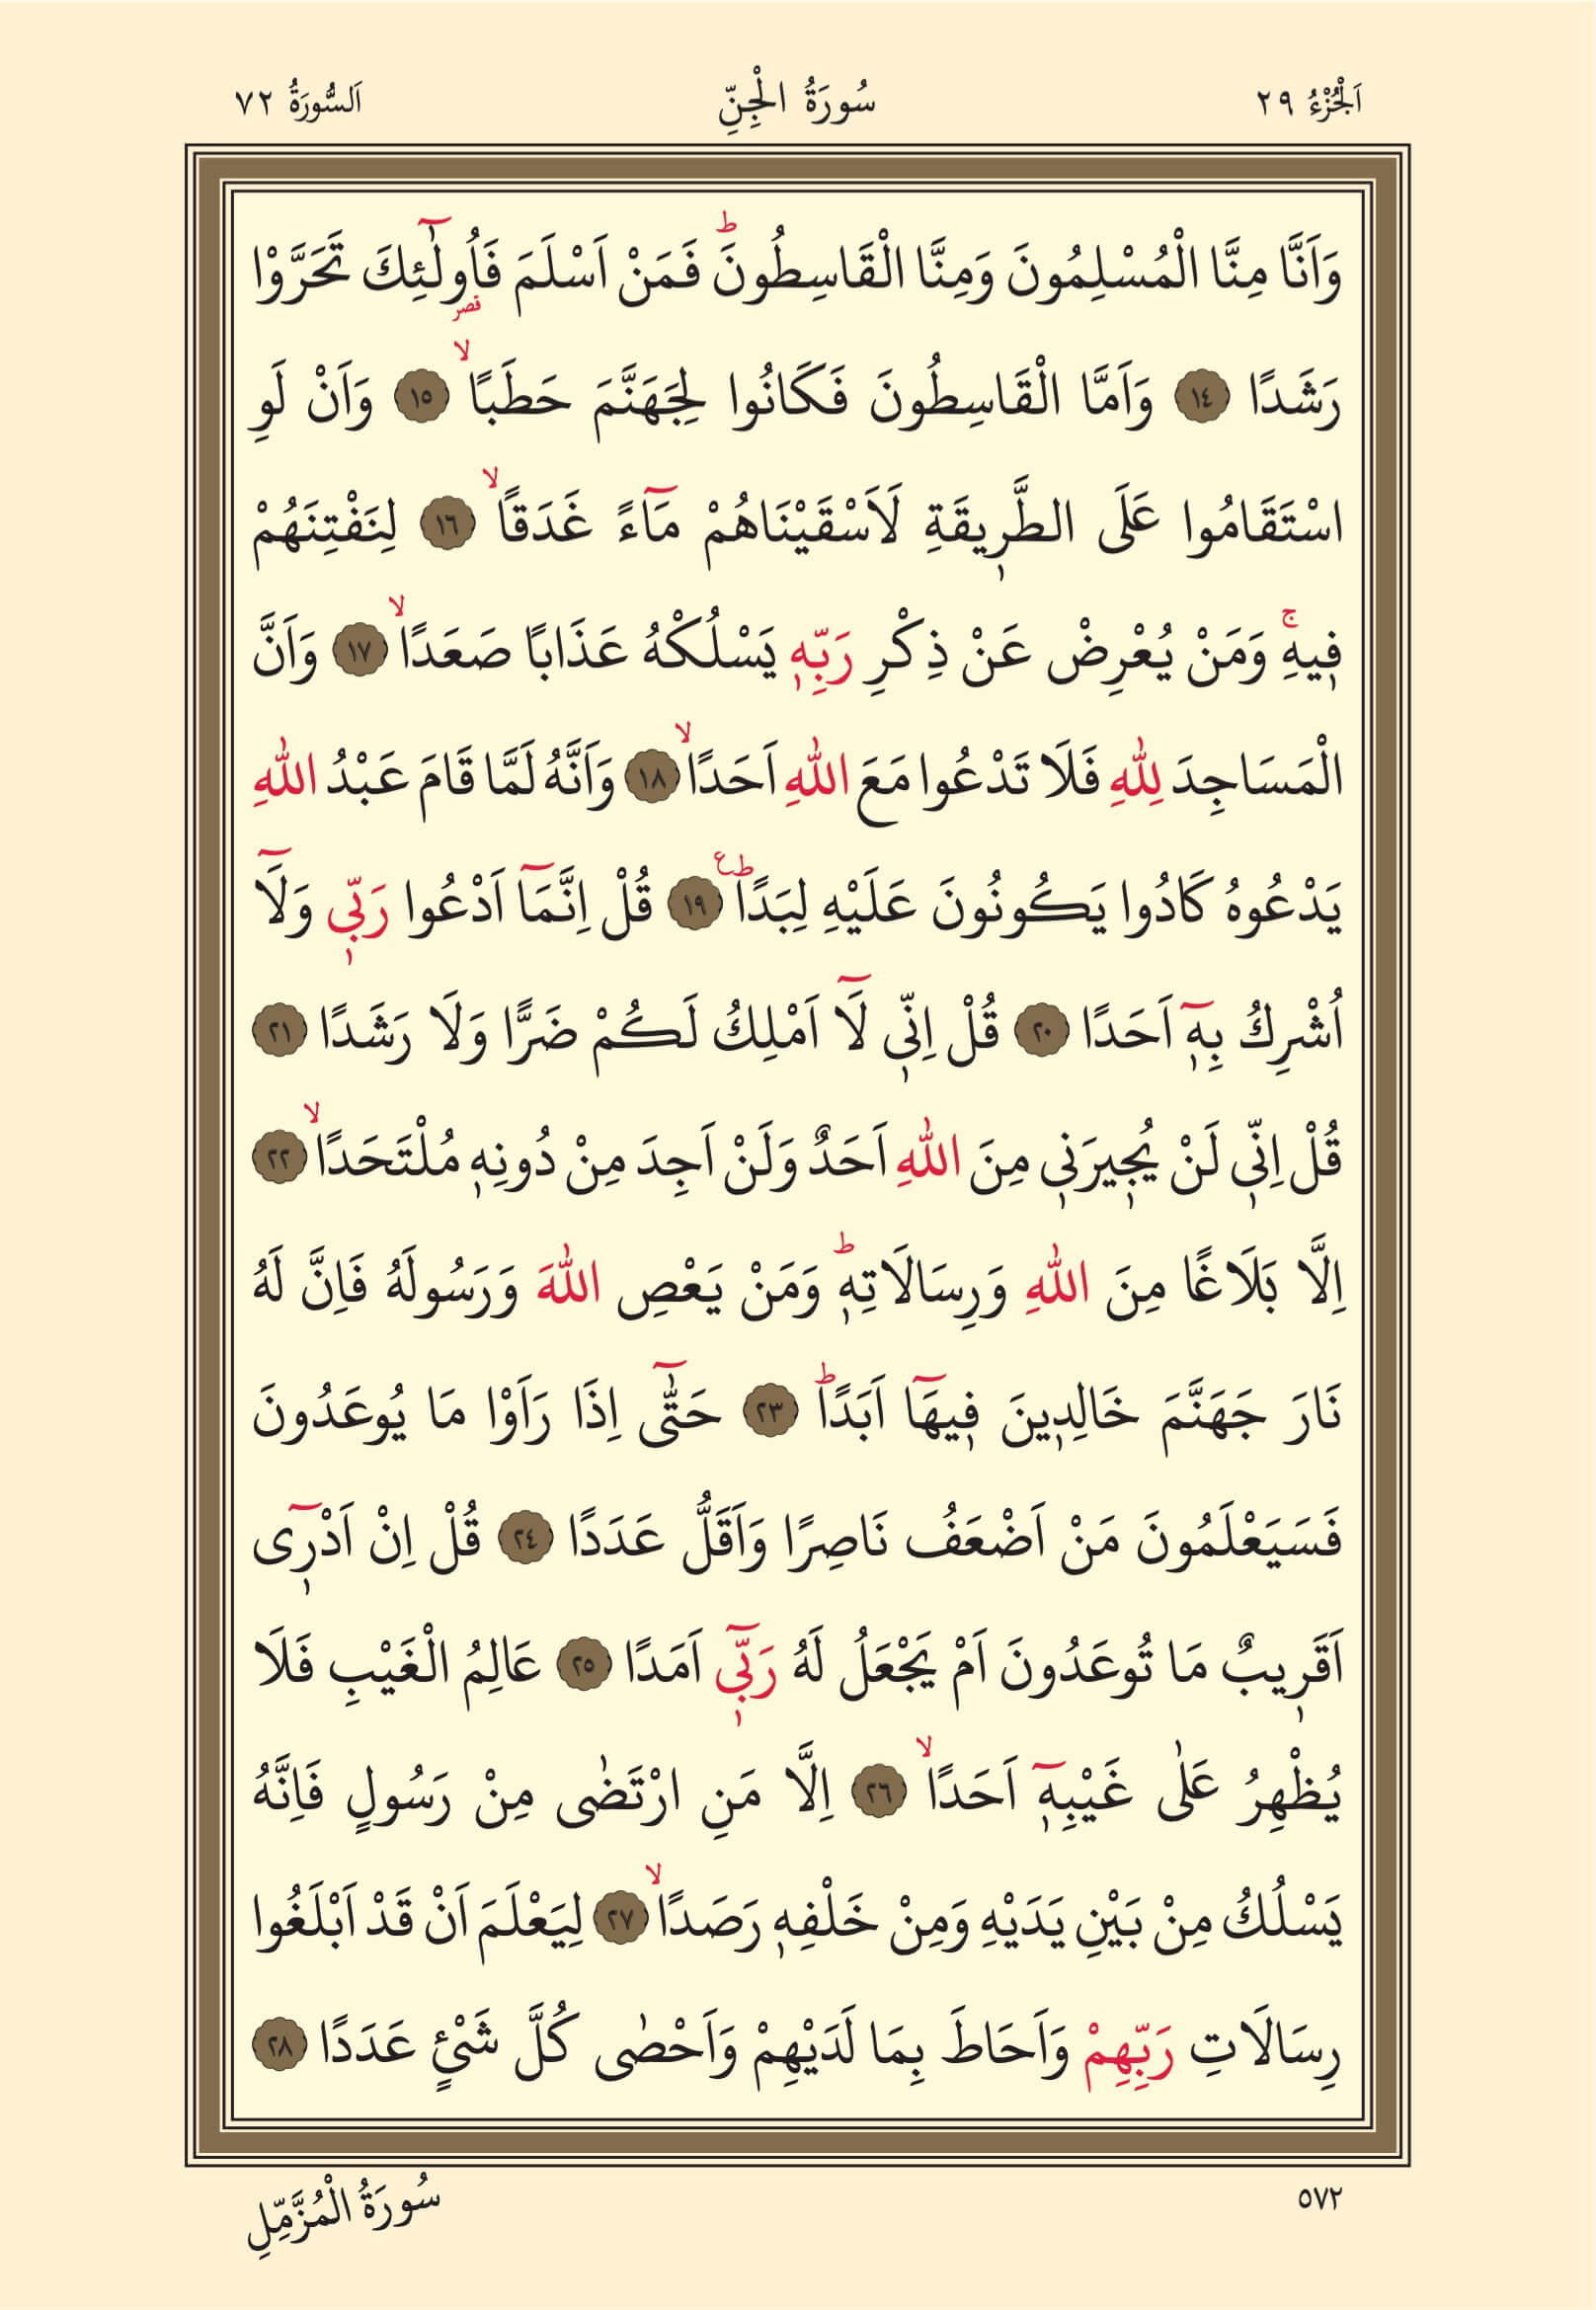 اَلْجُزْءُ ٢٩ سُورَةُ الْجِنِّ اَلسُّورَةُ ٧٢
وَاَنَّا مِنَّا الْمُسْلِمُونَ وَمِنَّا الْقَاسِطُونَۜ فَمَنْ اَسْلَمَ فَاُو۬لٰٓئِكَ تَحَرَّوْا
رَشَدًا ﴿١٤﴾ وَاَمَّا الْقَاسِطُونَ فَكَانُوا لِجَهَنَّمَ حَطَبًاۙ ﴿١٥﴾ وَاَنْ لَوِ
اسْتَقَامُوا عَلَى الطَّر۪يقَةِ لَاَسْقَيْنَاهُمْ مَٓاءً غَدَقًاۙ ﴿١٦﴾ لِنَفْتِنَهُمْ
ف۪يهِۚ وَمَنْ يُعْرِضْ عَنْ ذِكْرِ رَبِّه۪ يَسْلُكْهُ عَذَابًا صَعَدًاۙ ﴿١٧﴾ وَاَنَّ
الْمَسَاجِدَ لِلّٰهِ فَلَا تَدْعُوا مَعَ اللّٰهِ اَحَدًاۙ ﴿١٨﴾ وَاَنَّهُ لَمَّا قَامَ عَبْدُ اللّٰهِ
يَدْعُوهُ كَادُوا يَكُونُونَ عَلَيْهِ لِبَدًاۜ ع ﴿١٩﴾ قُلْ اِنَّمَٓا اَدْعُوا رَبّ۪ي وَلَٓا
اُشْرِكُ بِه۪ٓ اَحَدًا ﴿٢٠﴾ قُلْ اِنّ۪ي لَٓا اَمْلِكُ لَكُمْ ضَرًّا وَلَا رَشَدًا ﴿٢١﴾
قُلْ اِنّ۪ي لَنْ يُج۪يرَن۪ي مِنَ اللّٰهِ اَحَدٌ وَلَنْ اَجِدَ مِنْ دُونِه۪ مُلْتَحَدًاۙ ﴿٢٢﴾
اِلَّا بَلَاغًا مِنَ اللّٰهِ وَرِسَالَاتِه۪ۜ وَمَنْ يَعْصِ اللّٰهَ وَرَسُولَهُ فَاِنَّ لَهُ
نَارَ جَهَنَّمَ خَالِد۪ينَ ف۪يهَٓا اَبَدًاۜ ﴿٢٣﴾ حَتّٰٓى اِذَا رَاَوْا مَا يُوعَدُونَ
فَسَيَعْلَمُونَ مَنْ اَضْعَفُ نَاصِرًا وَاَقَلُّ عَدَدًا ﴿٢٤﴾ قُلْ اِنْ اَدْر۪ٓى
اَقَر۪يبٌ مَا تُوعَدُونَ اَمْ يَجْعَلُ لَهُ رَبّ۪ٓي اَمَدًا ﴿٢٥﴾ عَالِمُ الْغَيْبِ فَلَا
يُظْهِرُ عَلٰى غَيْبِه۪ٓ اَحَدًاۙ ﴿٢٦﴾ اِلَّا مَنِ ارْتَضٰى مِنْ رَسُولٍ فَاِنَّهُ
يَسْلُكُ مِنْ بَيْنِ يَدَيْهِ وَمِنْ خَلْفِه۪ رَصَدًاۙ ﴿٢٧﴾ لِيَعْلَمَ اَنْ قَدْ اَبْلَغُوا
رِسَالَاتِ رَبِّهِمْ وَاَحَاطَ بِمَا لَدَيْهِمْ وَاَحْصٰى كُلَّ شَيْءٍ عَدَدًا ﴿٢٨﴾
٥٧٢ سُورَةُ الْمُزَّمِّلِ